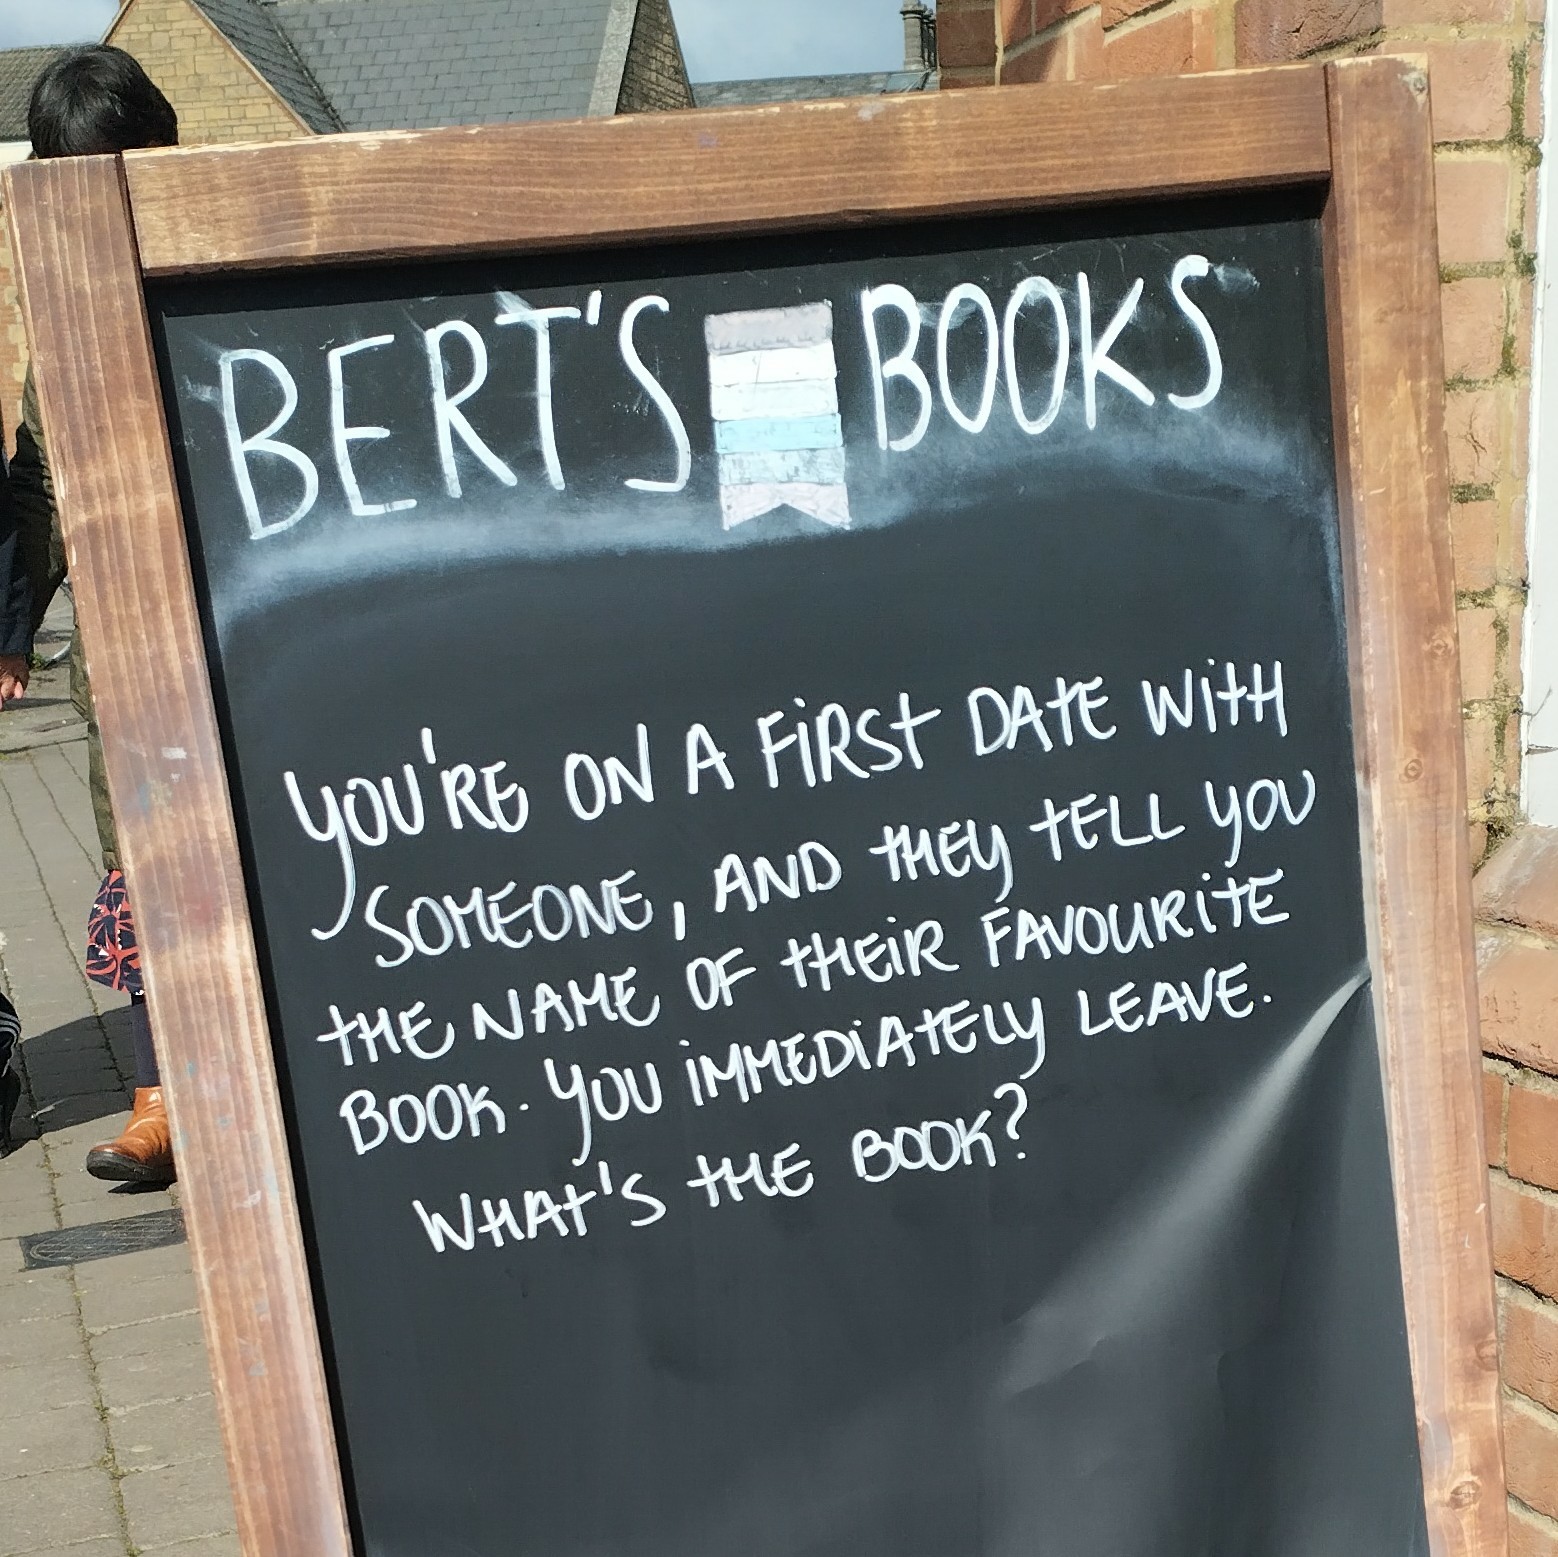 BERT'S BOOKS
YOU'RE ON A FIRST DATE WITH
SOMEONE, AND THEY TELL YOU
THE NAME OF THEIR FAVOURITE
BOOK. YOU IMMEDIATELY LEAVE.
WHAT'S THE BOOK?